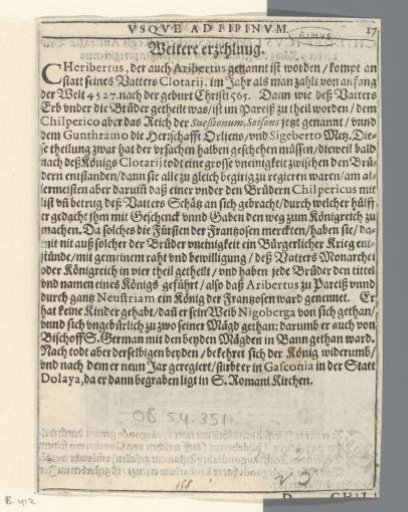 VSQVE AD PIPINVM.
17
Weitere erzehlung.
CHeribertus, der auch Aribertus genannt ist worden / kompt an
statt seines Vatters Clotarij, im Jahr als man zahlt von anfang
der Welt 4527. nach der geburt Christi 565. Dann wie deß Vatters
Erb vnder die Brüder getheilt war / ist im Pareiß zu theil worden / dem
Chilperico aber das Reich der Suessionum, Soisons jetzt genannt / vnnd
dem Gunthramo die Herrschafft Orliens / vnd Sigeberto Metz. Die-
se theilung zwar hat der vrsachen halben geschehen müssen / dieweil bald
nach deß Königs Clotarij todt eine grosse vneinigkeit zwischen den Brü-
dern entstanden / dann sie alle zu gleich begirig zu regieren waren / am al-
lermeisten aber darumb daß einer vnder den Brüdern Chilpericus mit
list vñ betrug deß Vatters Schätz an sich gebracht / durch welcher hülff
er gedacht ihm mit Geschenck vnnd Gaben den weg zum Königreich zu
machen. Da solches die Fürsten der Frantzosen merckten / haben sie / da-
mit nit auß solcher der Brüder vneinigkeit ein Bürgerlicher Krieg ent-
stünde / mit gemeinem raht vnd bewilligung / deß Vatters Monarchei
oder Königreich in vier theil getheilt / vnd haben jede Brüder den tittel
vnd namen eines Königs geführt / also daß Aribertus zu Pareiß vnnd
durch gantz Neustriam ein König der Frantzosen ward genennet. Er
hat keine Kinder gehabt / dañ er sein Weib Nigoberga von sich gethan /
vnnd sich vngebürlich zu zwo seiner Mägd gethan: darumb er auch von
Bischoff S. German mit den beyden Mägden in Bann gethan ward.
Nach todt aber derselbigen beyden / bekehret sich der König widerumb /
vnd nach dem er neun Jar geregiert / stirbt er in Gasconia in der Statt
Dolaya, da er dann begraben ligt in S. Romani Kirchen.
OB 54.351
168
B. 412